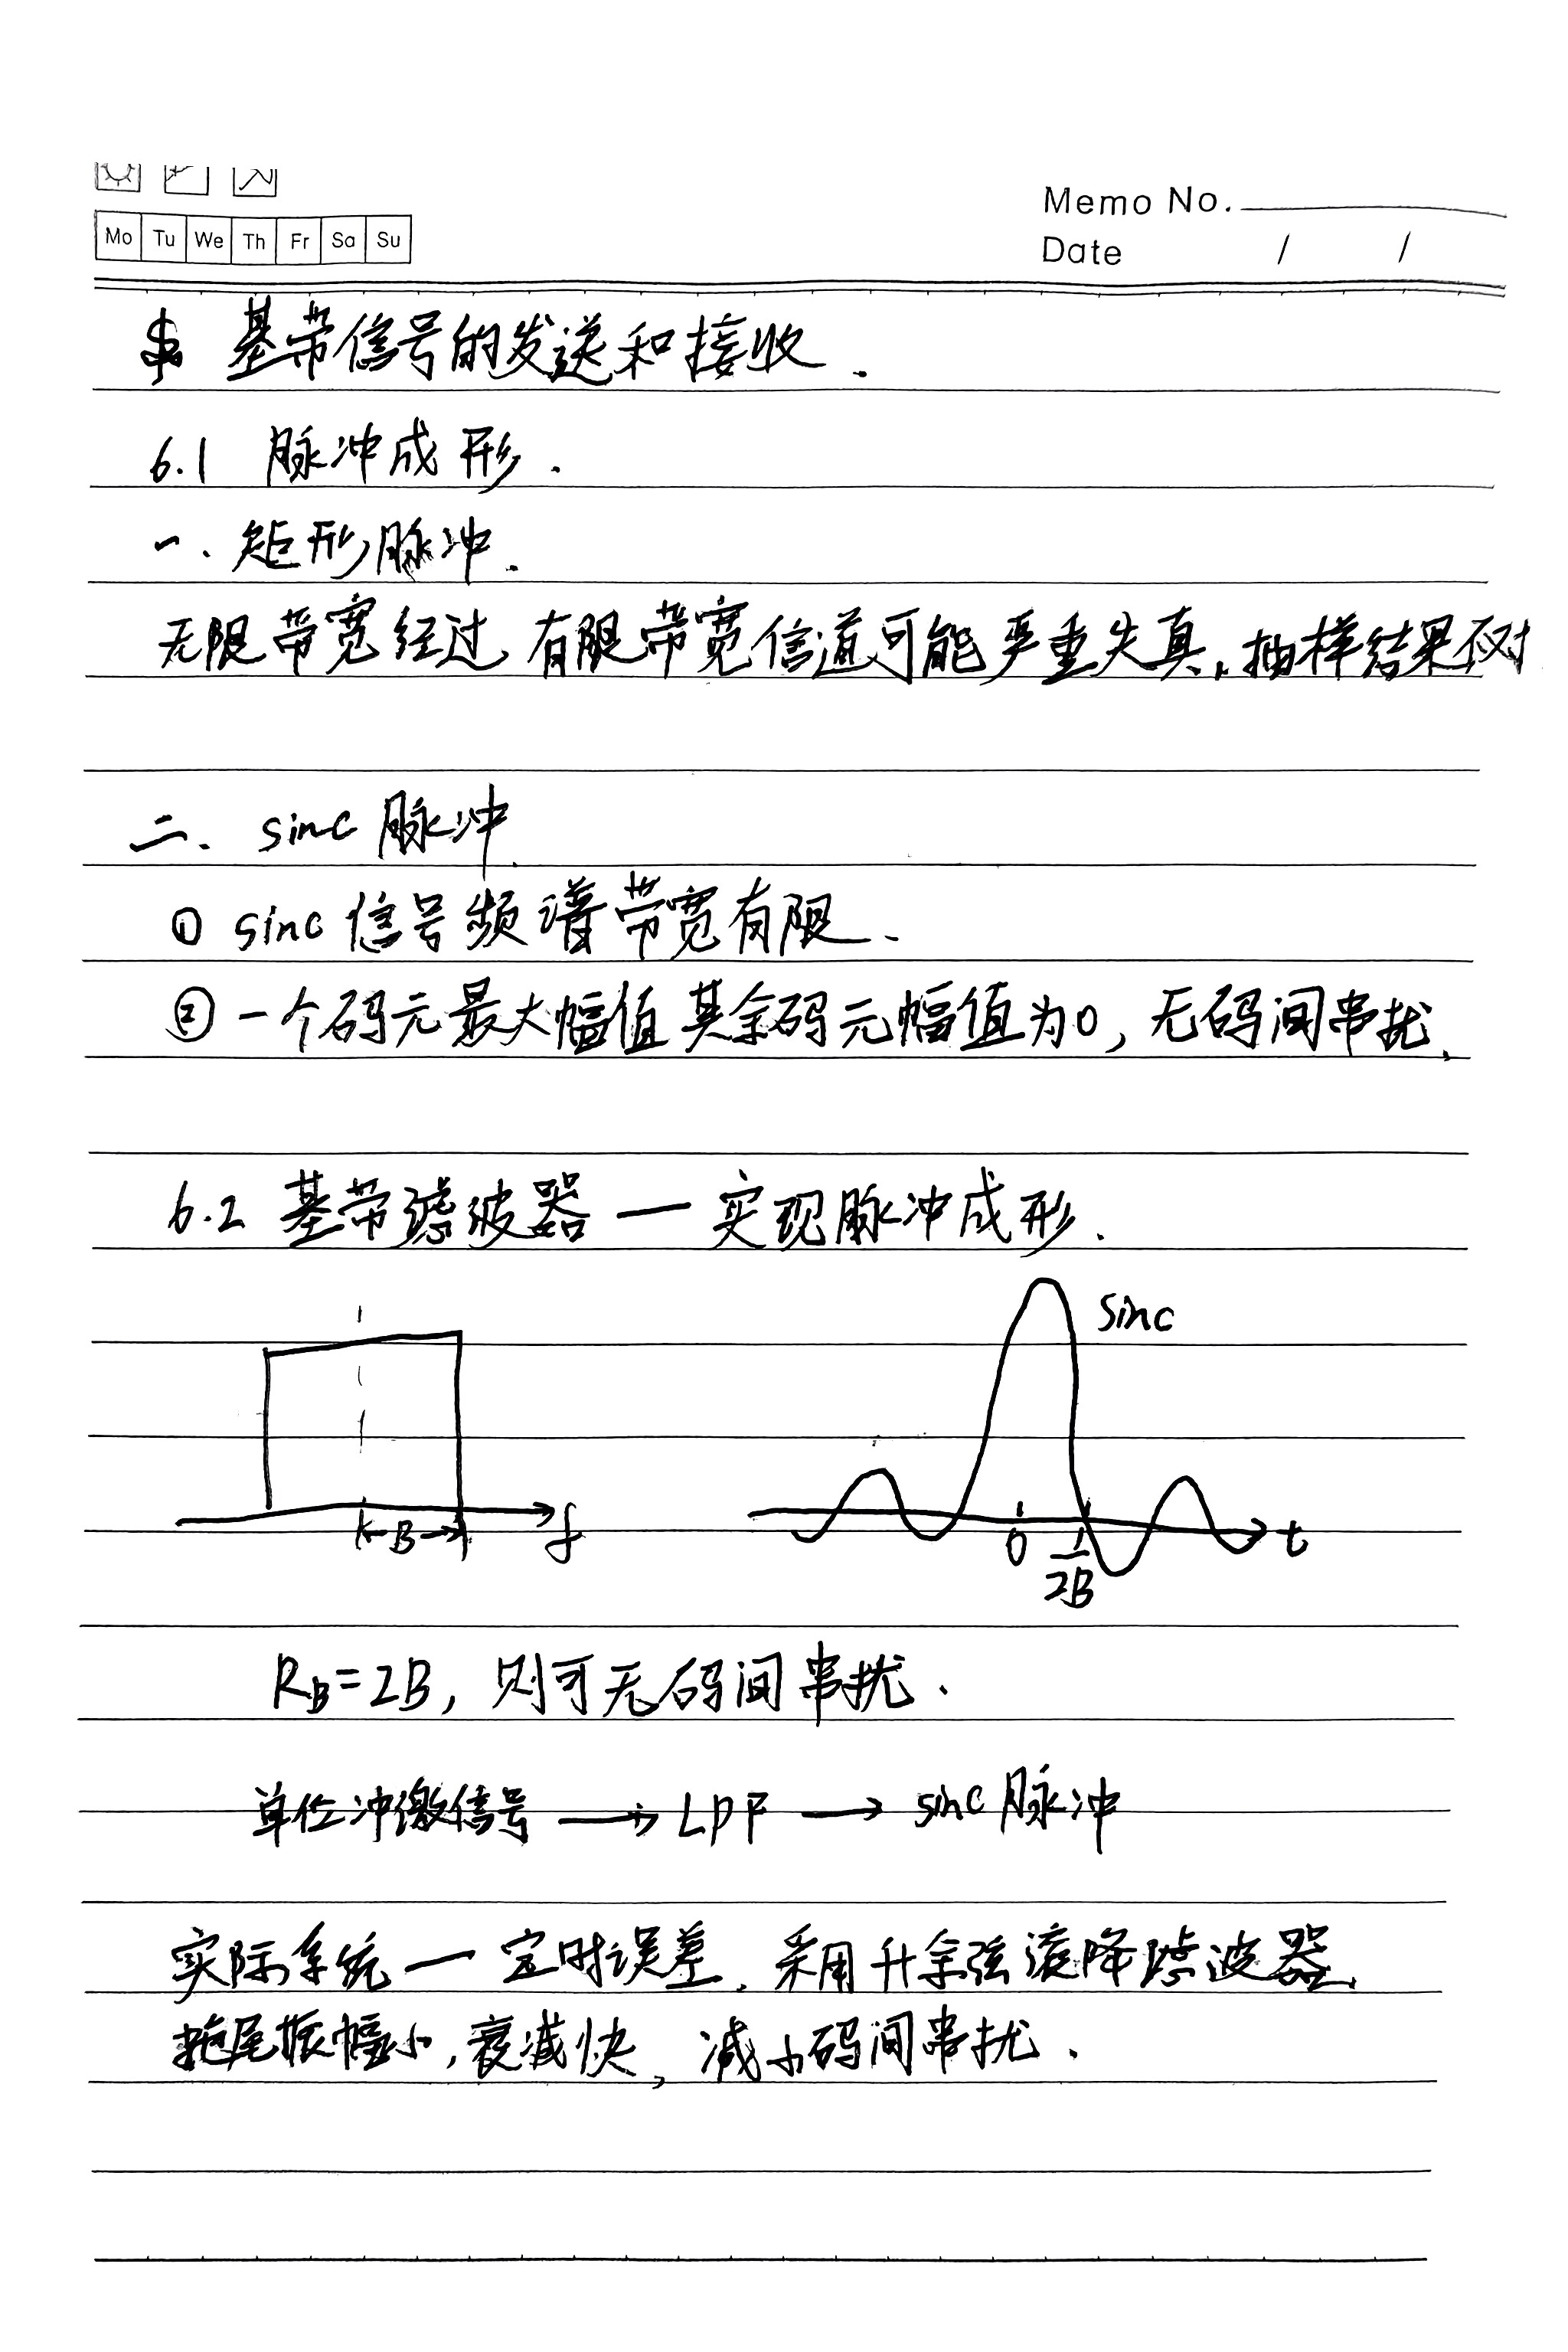 Mo Tu We Th Fr Sa Su
Memo No.
Date / /
基带信号的发送和接收.
6.1 脉冲成形.
一、矩形脉冲.
无限带宽经过有限带宽信道可能严重失真,抽样结果
二、sinc脉冲
① sinc信号频谱带宽有限.
② 一个码元最大幅值其余码元幅值为0,无码间串扰.
6.2 基带滤波器—实现脉冲成形.
sinc
B f
0 1/2B t
RB=2B,则可无码间串扰.
单位冲激信号 → LPF → sinc脉冲
实际系统—定时误差.采用升余弦滚降滤波器.
拖尾振幅小,衰减快,减小码间串扰.